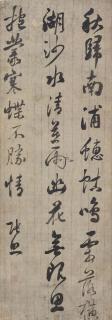 秋歸南浦蟪蛄鳴霜落橫
湖沙水清臥雨幽花無限思
抱叢寒蝶不勝情